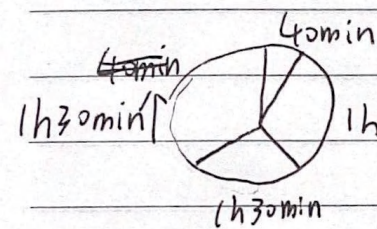 40min
40min
1h30min
1h
1h30min